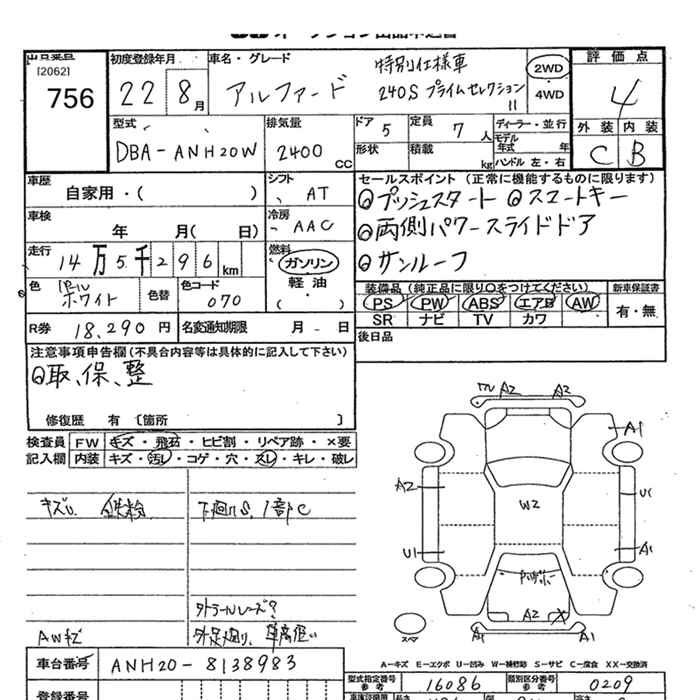 [2062]
756
初度登録年月
22 8月
車名・グレード
アルファード
特別仕様車
240S プライムセレクション
II
2WD
4WD
評価点
4
外装 内装
C B
型式
DBA-ANH20W
排気量
2400 cc
ドア 5
形状
定員 7 人
積載 kg
ディーラー・並行
モデル年式 年
ハンドル 左・右
車歴
自家用・( )
シフト
AT
セールスポイント (正常に機能するものに限ります)
プッシュスタート スマートキー
両側パワースライドドア
サンルーフ
車検
年 月( 日)
冷房
AAC
走行
14万5千296km
燃料
ガソリン
軽油
( ・ )
色
パール
ホワイト
色替
色コード
070
装備品 (純正品に限り○をつけてください)
PS PW ABS エアB AW
SR ナビ TV カワ
新車保証書
有・無
R券 18,290円
名変通知期限 月 日
後日品
注意事項申告欄 (不具合内容等は具体的に記入して下さい)
取、保、整
修復歴 有 〔箇所 〕
検査員
記入欄
FW キズ・飛石・ヒビ割・リペア跡・×要
内装 キズ・汚レ・コゲ・穴・スレ・キレ・破レ
キズU 鉄粉
下廻りS、1部C
外トラールレーズ?
外足廻り、車高低い
AWキズ
A2 A2
A1
A2
U1
W2
U1
A1
A2 X
A1 A1
スペア
A-キズ E-エクボ U-凹み W-補修跡 S-サビ C-腐食 XX-交換済
車台番号 ANH20-8138983
型式指定番号
参考
16086
類別区分番号
参考
0209
登録番号